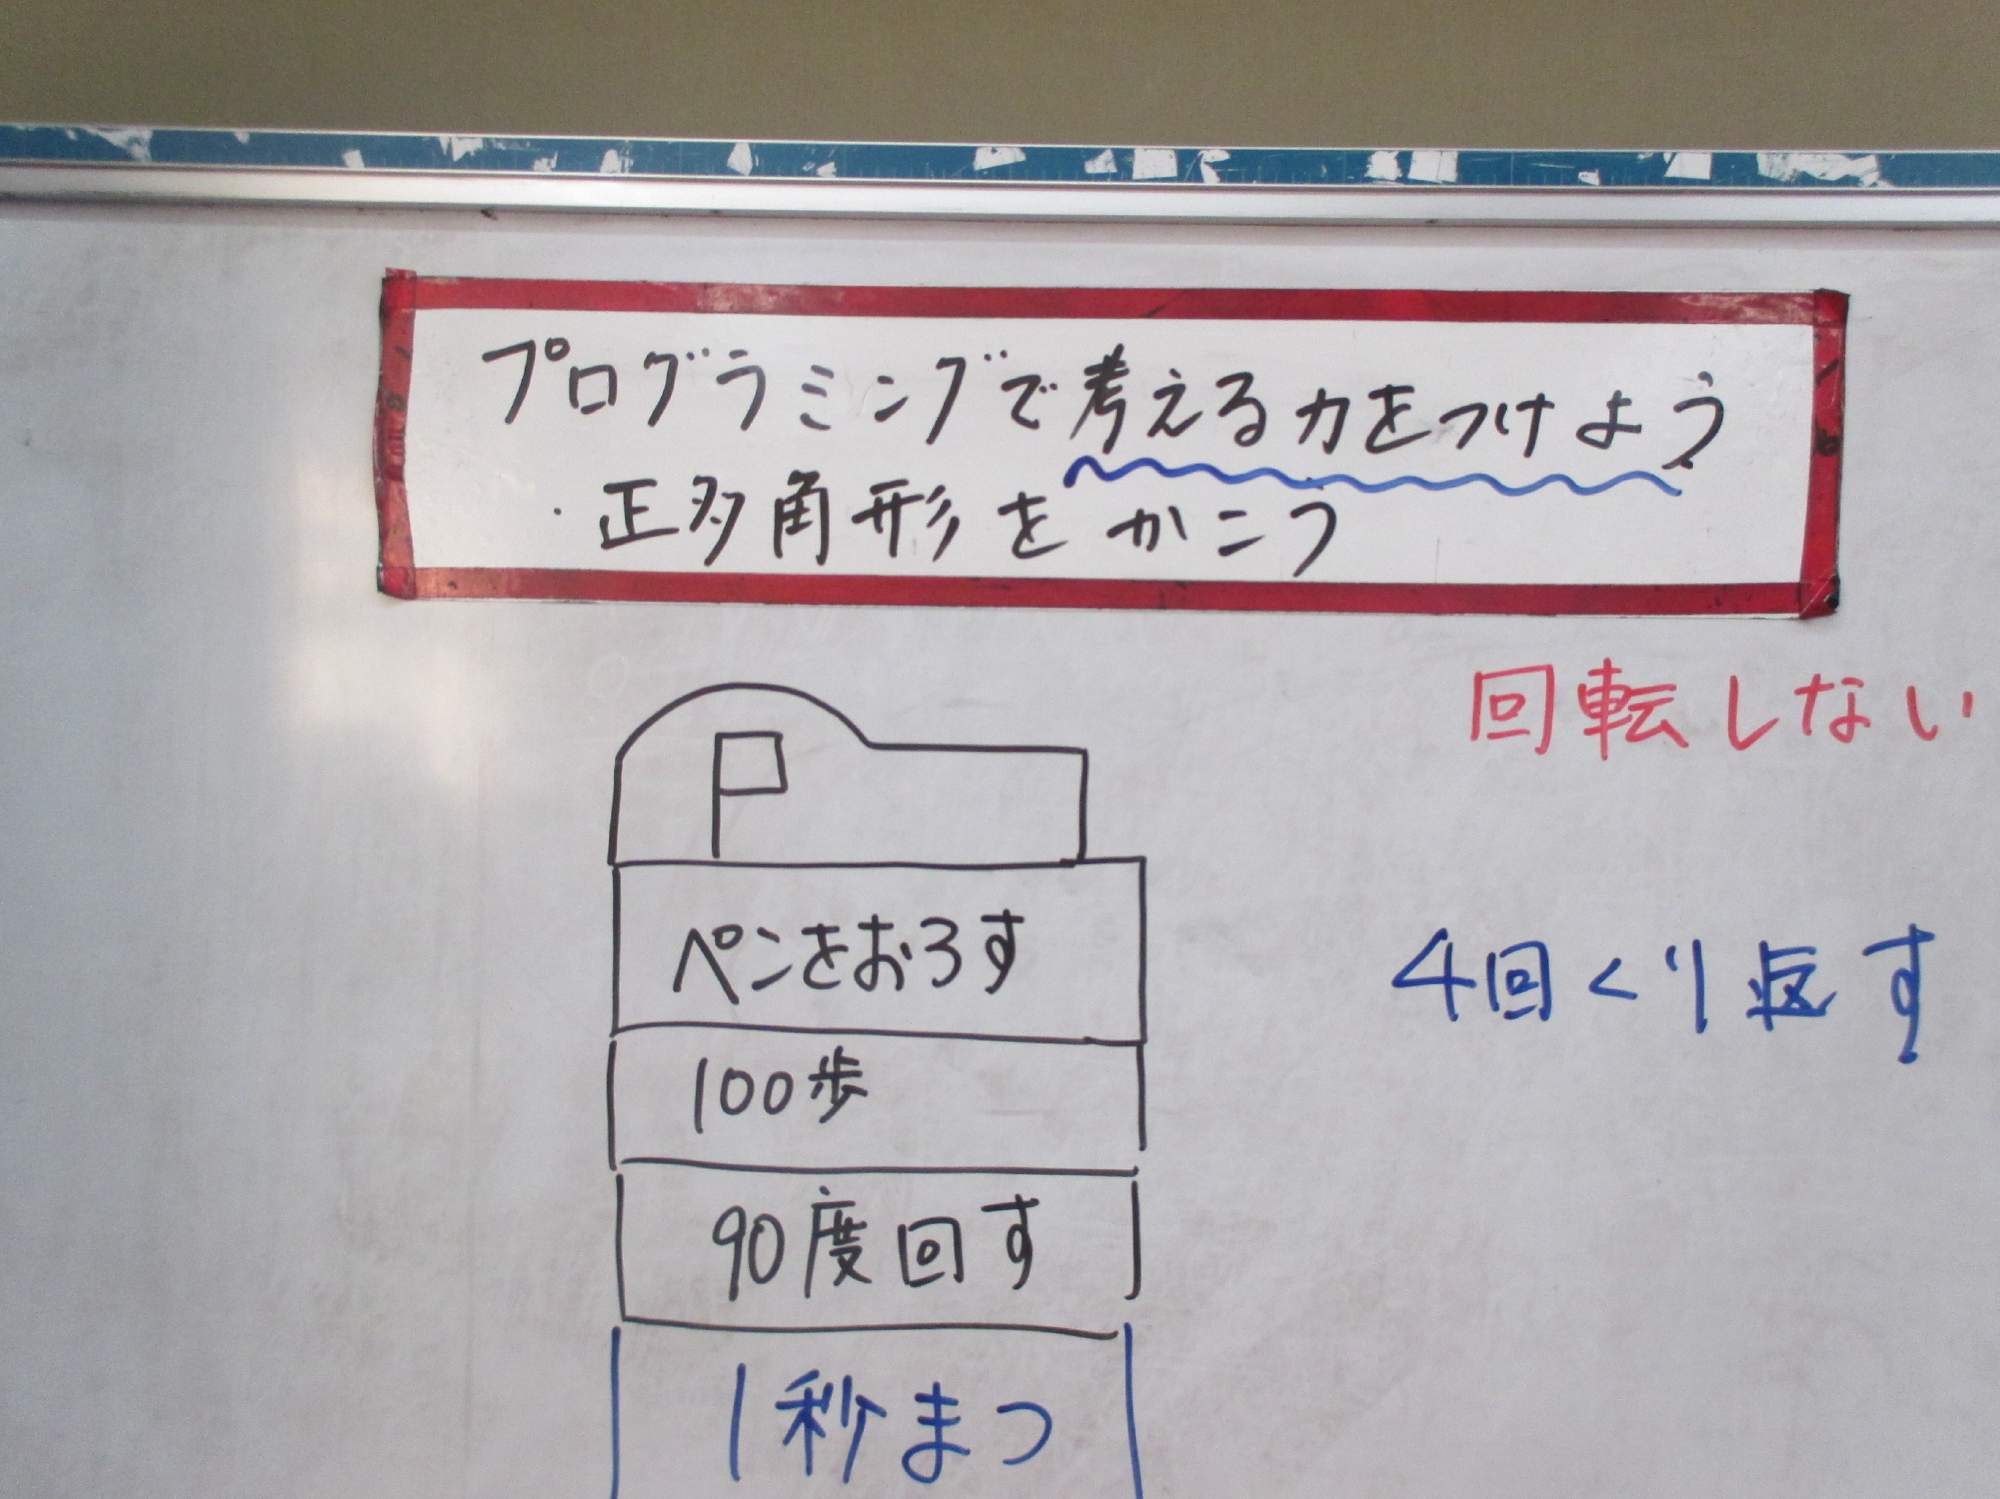 プログラミングで考える力をつけよう
・正多角形をかこう
回転しない
ペンをおろす
4回くり返す
100歩
90度回す
1秒まつ